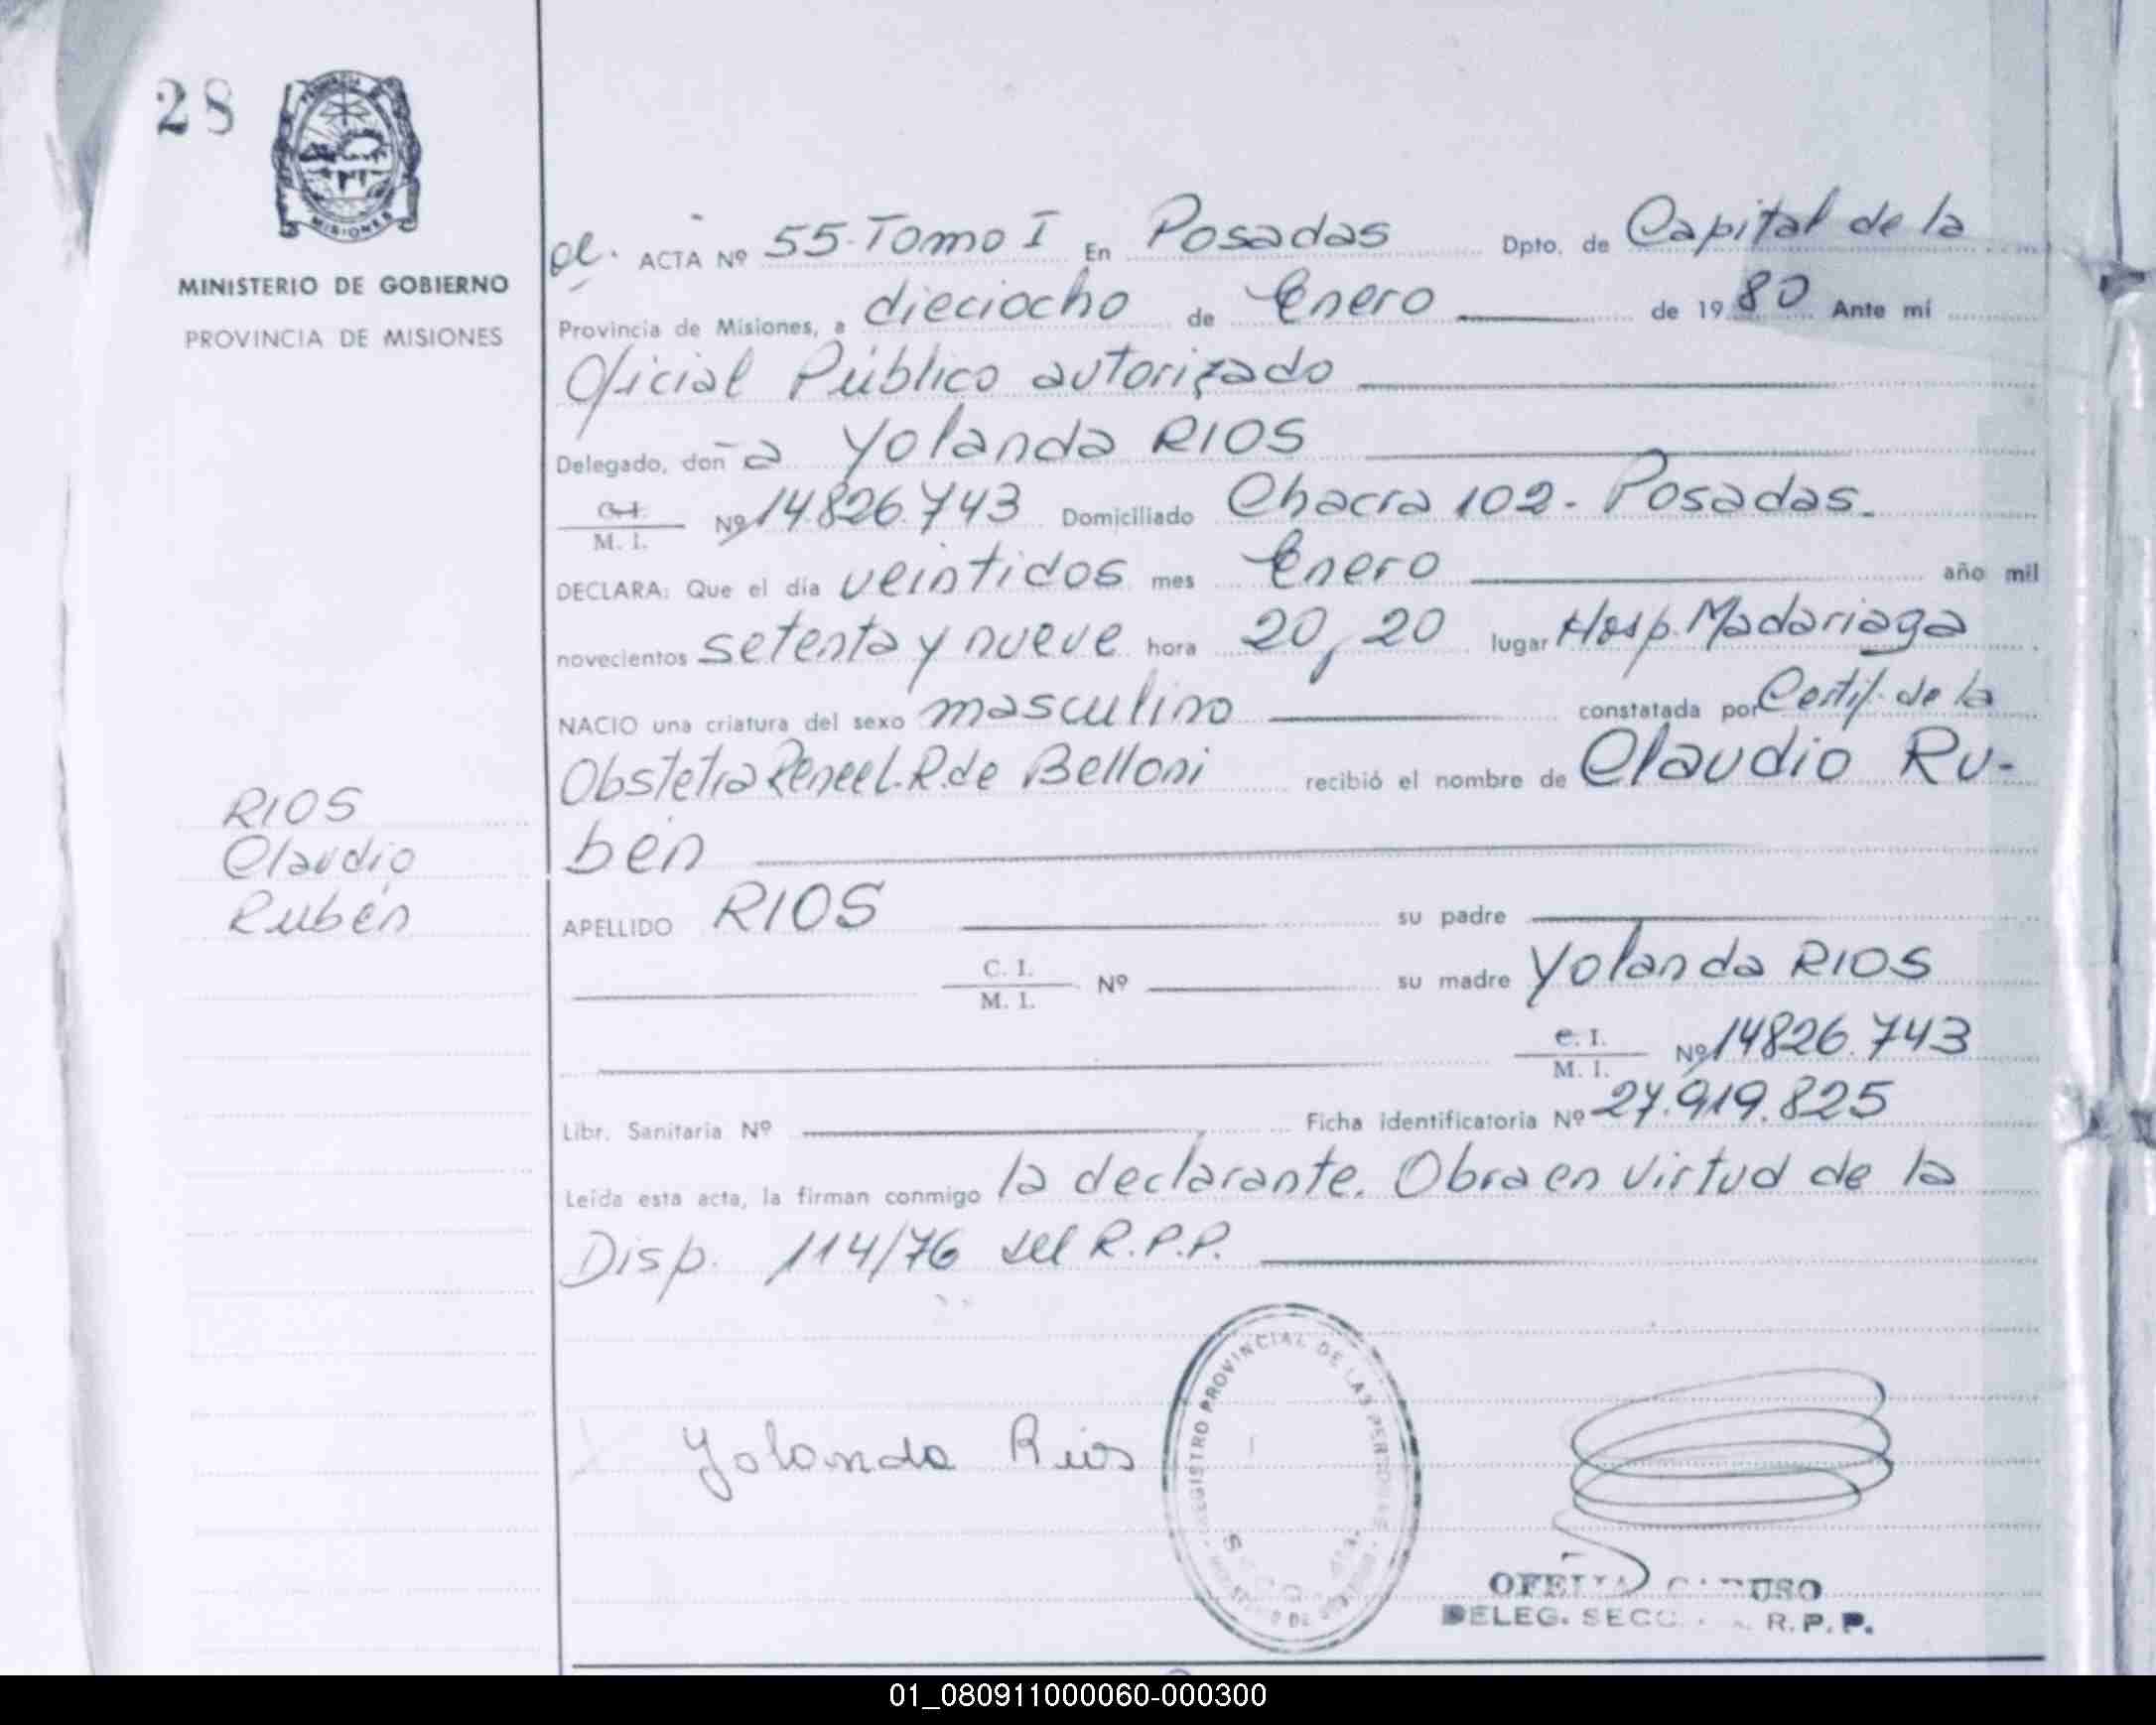 28
PROVINCIA DE
MISIONES
MINISTERIO DE GOBIERNO
PROVINCIA DE MISIONES
RIOS
Claudio
Rubén
ACTA Nº 55-Tomo I En Posadas Dpto. de Capital de la
Provincia de Misiones, a dieciocho de Enero de 1980 Ante mí
Oficial Público autorizado
Delegado, doña Yolanda RIOS
C.I. M. I. Nº 14.826.743 Domiciliado Chacra 102- Posadas.
DECLARA: Que el día veintidos mes Enero año mil
novecientos setenta y nueve hora 20,20 lugar Hosp. Madariaga
NACIO una criatura del sexo masculino constatada por Certif. de la
Obstetra Renee L. R. de Belloni recibió el nombre de Claudio Ru-
bén
APELLIDO RIOS su padre
C. I. M. I. Nº su madre Yolanda RIOS
C. I. M. I. Nº 14826.743
Libr. Sanitaria Nº Ficha identificatoria Nº 27.919.825
Leída esta acta, la firman conmigo la declarante. Obra en virtud de la
Disp. 114/76 del R.P.P.
REGISTRO PROVINCIAL DE LAS PERSONAS
Yolanda Rios
OFELIA CARUSO
DELEG. SECC. R. P. P.
01_080911000060-000300